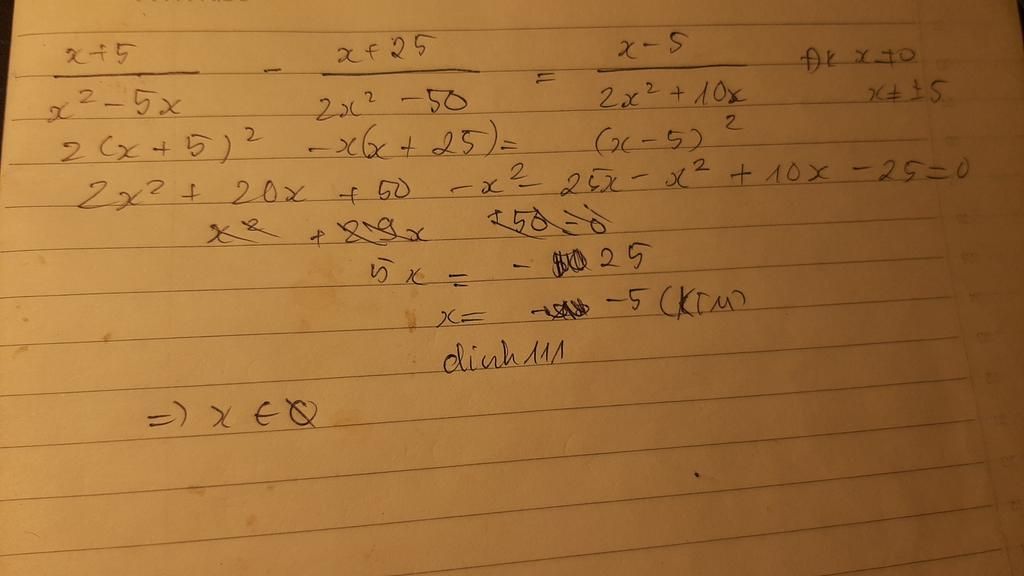 x+5 / x² - 5x - x+25 / 2x² - 50 = x-5 / 2x² + 10x ĐK x ≠ 0
x ≠ ±5
2(x+5)² - x(x+25) = (x-5)²
2x² + 20x + 50 - x² - 25x - x² + 10x - 25 = 0
5x = - 25
x = -5 (KTM)
dinh111
=> x ∈ ∅